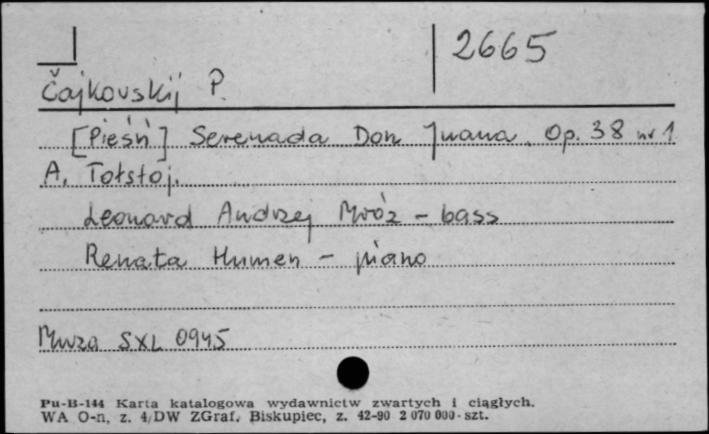 2665
Čajkovskij P.
[Pieśń] Serenada Don Juana. Op. 38 nr 1
A. Tołstoj.
Leonard Andrzej Mróz - bass
Renata Humen - piano
Muza SXL 0945
Pu-B-144 Karta katalogowa wydawnictw zwartych i ciągłych.
WA O-n, z. 4/DW ZGraf. Biskupiec, z. 42-90 2 070 000 szt.